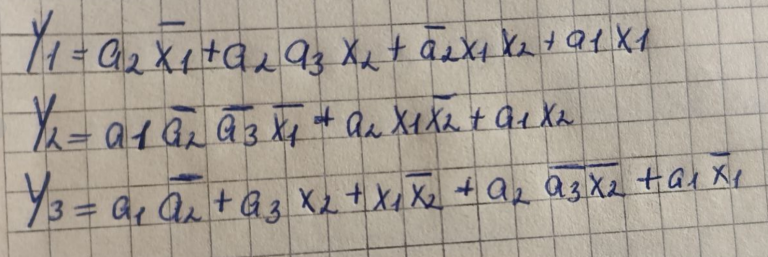 Y₁ = a₂ x̅₁ + a₂ a₃ x₂ + a̅₂ x₁ x₂ + a₁ x₁
Y₂ = a₁ a̅₂ a̅₃ x̅₁ + a₂ x₁ x̅₂ + a₁ x₂
Y₃ = a₁ a̅₂ + a₃ x₂ + x₁ x̅₂ + a₂ a̅₃ x̅₂ + a₁ x̅₁